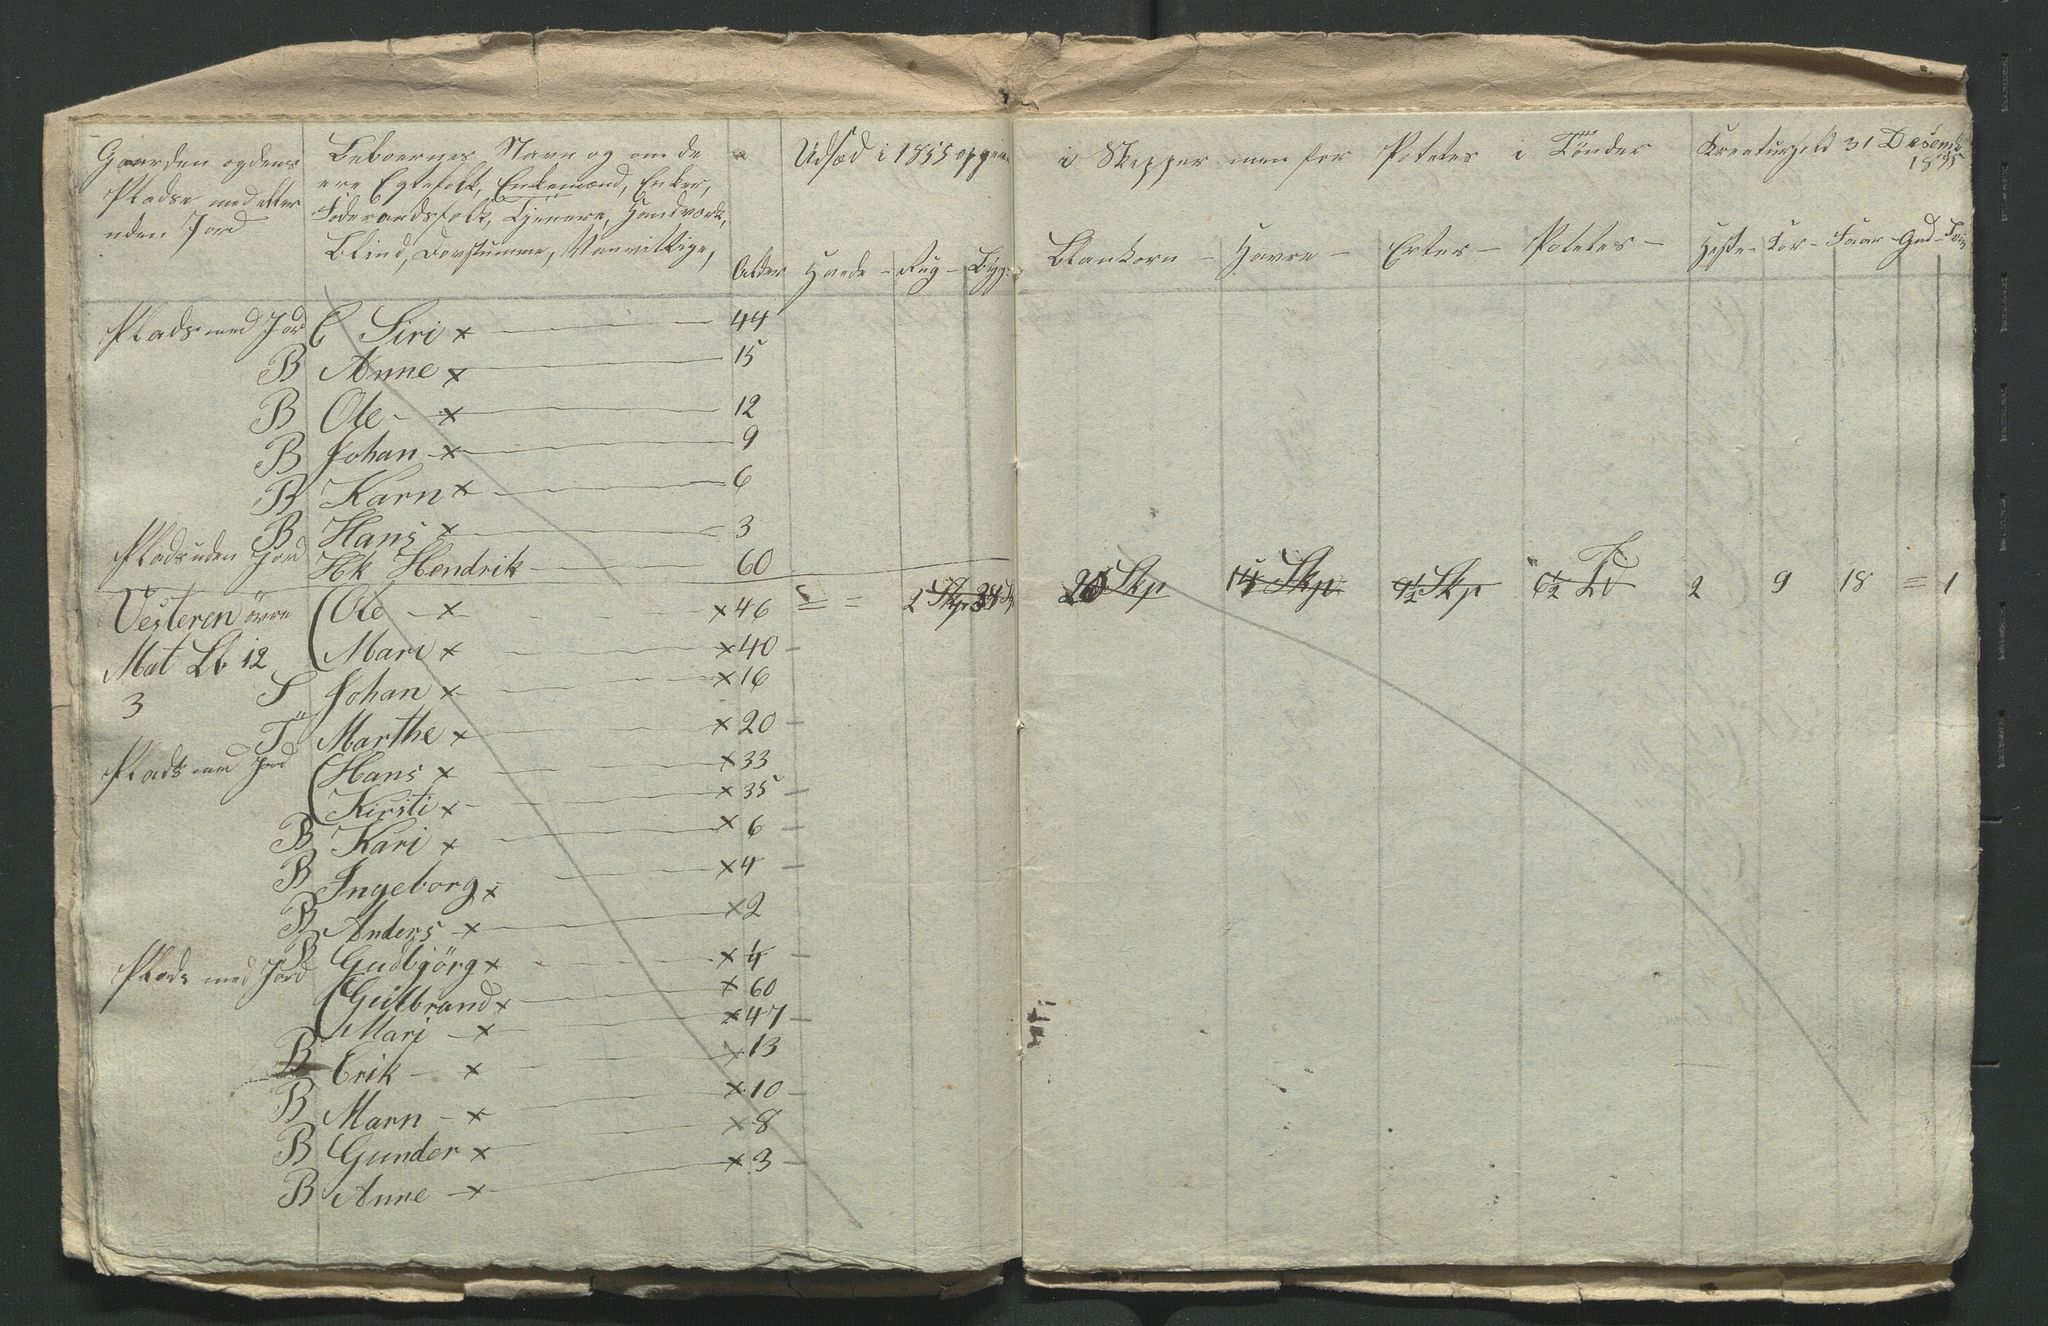 Gaarden og dens Pladse med eller uden Jord
Beboernes Navn og om de ere Egtefolk, Enkemænd, Enker, Føderaadsfolk, Tjenere, Handværk, Blind, Døvstumme, Vanvittige,
Alder
Udsæd i 1855 opgiv
i Skjepper men for Potetes i Tönder
Kreaturhold 31 Desemb 1855
Hvede – Rug – Byg
Blankorn – Havre – Erter – Potetes –
Heste – Kør – Faar – Ged – Sviin
Plads med Jord E Siri x 44
B Anne x 15
B Ole – x 12
B Johan – x 9
B Karn x 6
B Hans x 3
Plads uden Jord Hk Hendrik 60
Vesteren övre Ole – x x 46 = = 2 Skp 20 Skp 15 Skp 1/2 Skp 6 1/2 Td 2 9 18 = 1
Mari x x 40 –
Mat Lb 12
S Johan x x 16
3
T Marthe x x 20 –
Plads med Jord Hans x x 33
Kirsti x x 35 –
B Kari x x 6 –
B Ingeborg x x 4 –
B Anders – x x 2
B Gudbjörg x x 4 –
Plads med Jord Gulbrand x x 60
Mari – x x 47 –
B Erik – x x 13
B Marn – x x 10 –
B Gunder x x 8
B Anne – x x 3 –